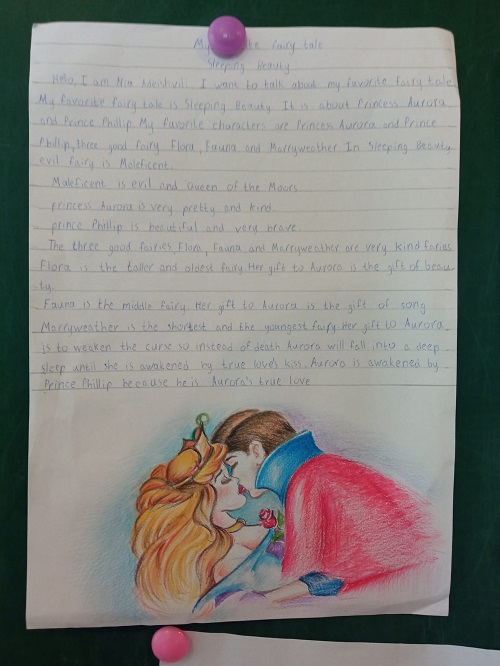 My fairy tale
Sleeping Beauty
Hello, I am Nia Adeishvili. I want to talk about my favorite fairy tale.
My favorite fairy tale is Sleeping Beauty. It is about Princess Aurora
and Prince Phillip. My favorite characters are Princess Aurora and Prince
Phillip, three good fairy Flora, Fauna and Marryweather. In Sleeping Beauty
evil fairy is Maleficent.
Maleficent is evil and Queen of the Moors
princess Aurora is very pretty and kind.
prince Phillip is beautiful and very brave.
The three good fairies, Flora, Fauna, and Marryweather are very kind faries
Flora is the taller and oldest fairy. Her gift to Aurora is the gift of beau
ty.
Fauna is the middle fairy. Her gift to Aurora is the gift of song
Marryweather is the shortest and the youngest fairy. Her gift to Aurora
is to weaken the curse so instead of death Aurora will fall into a deep
sleep until she is awakened by true love's kiss. Aurora is awakened by
Prince Phillip because he is Aurora's true love